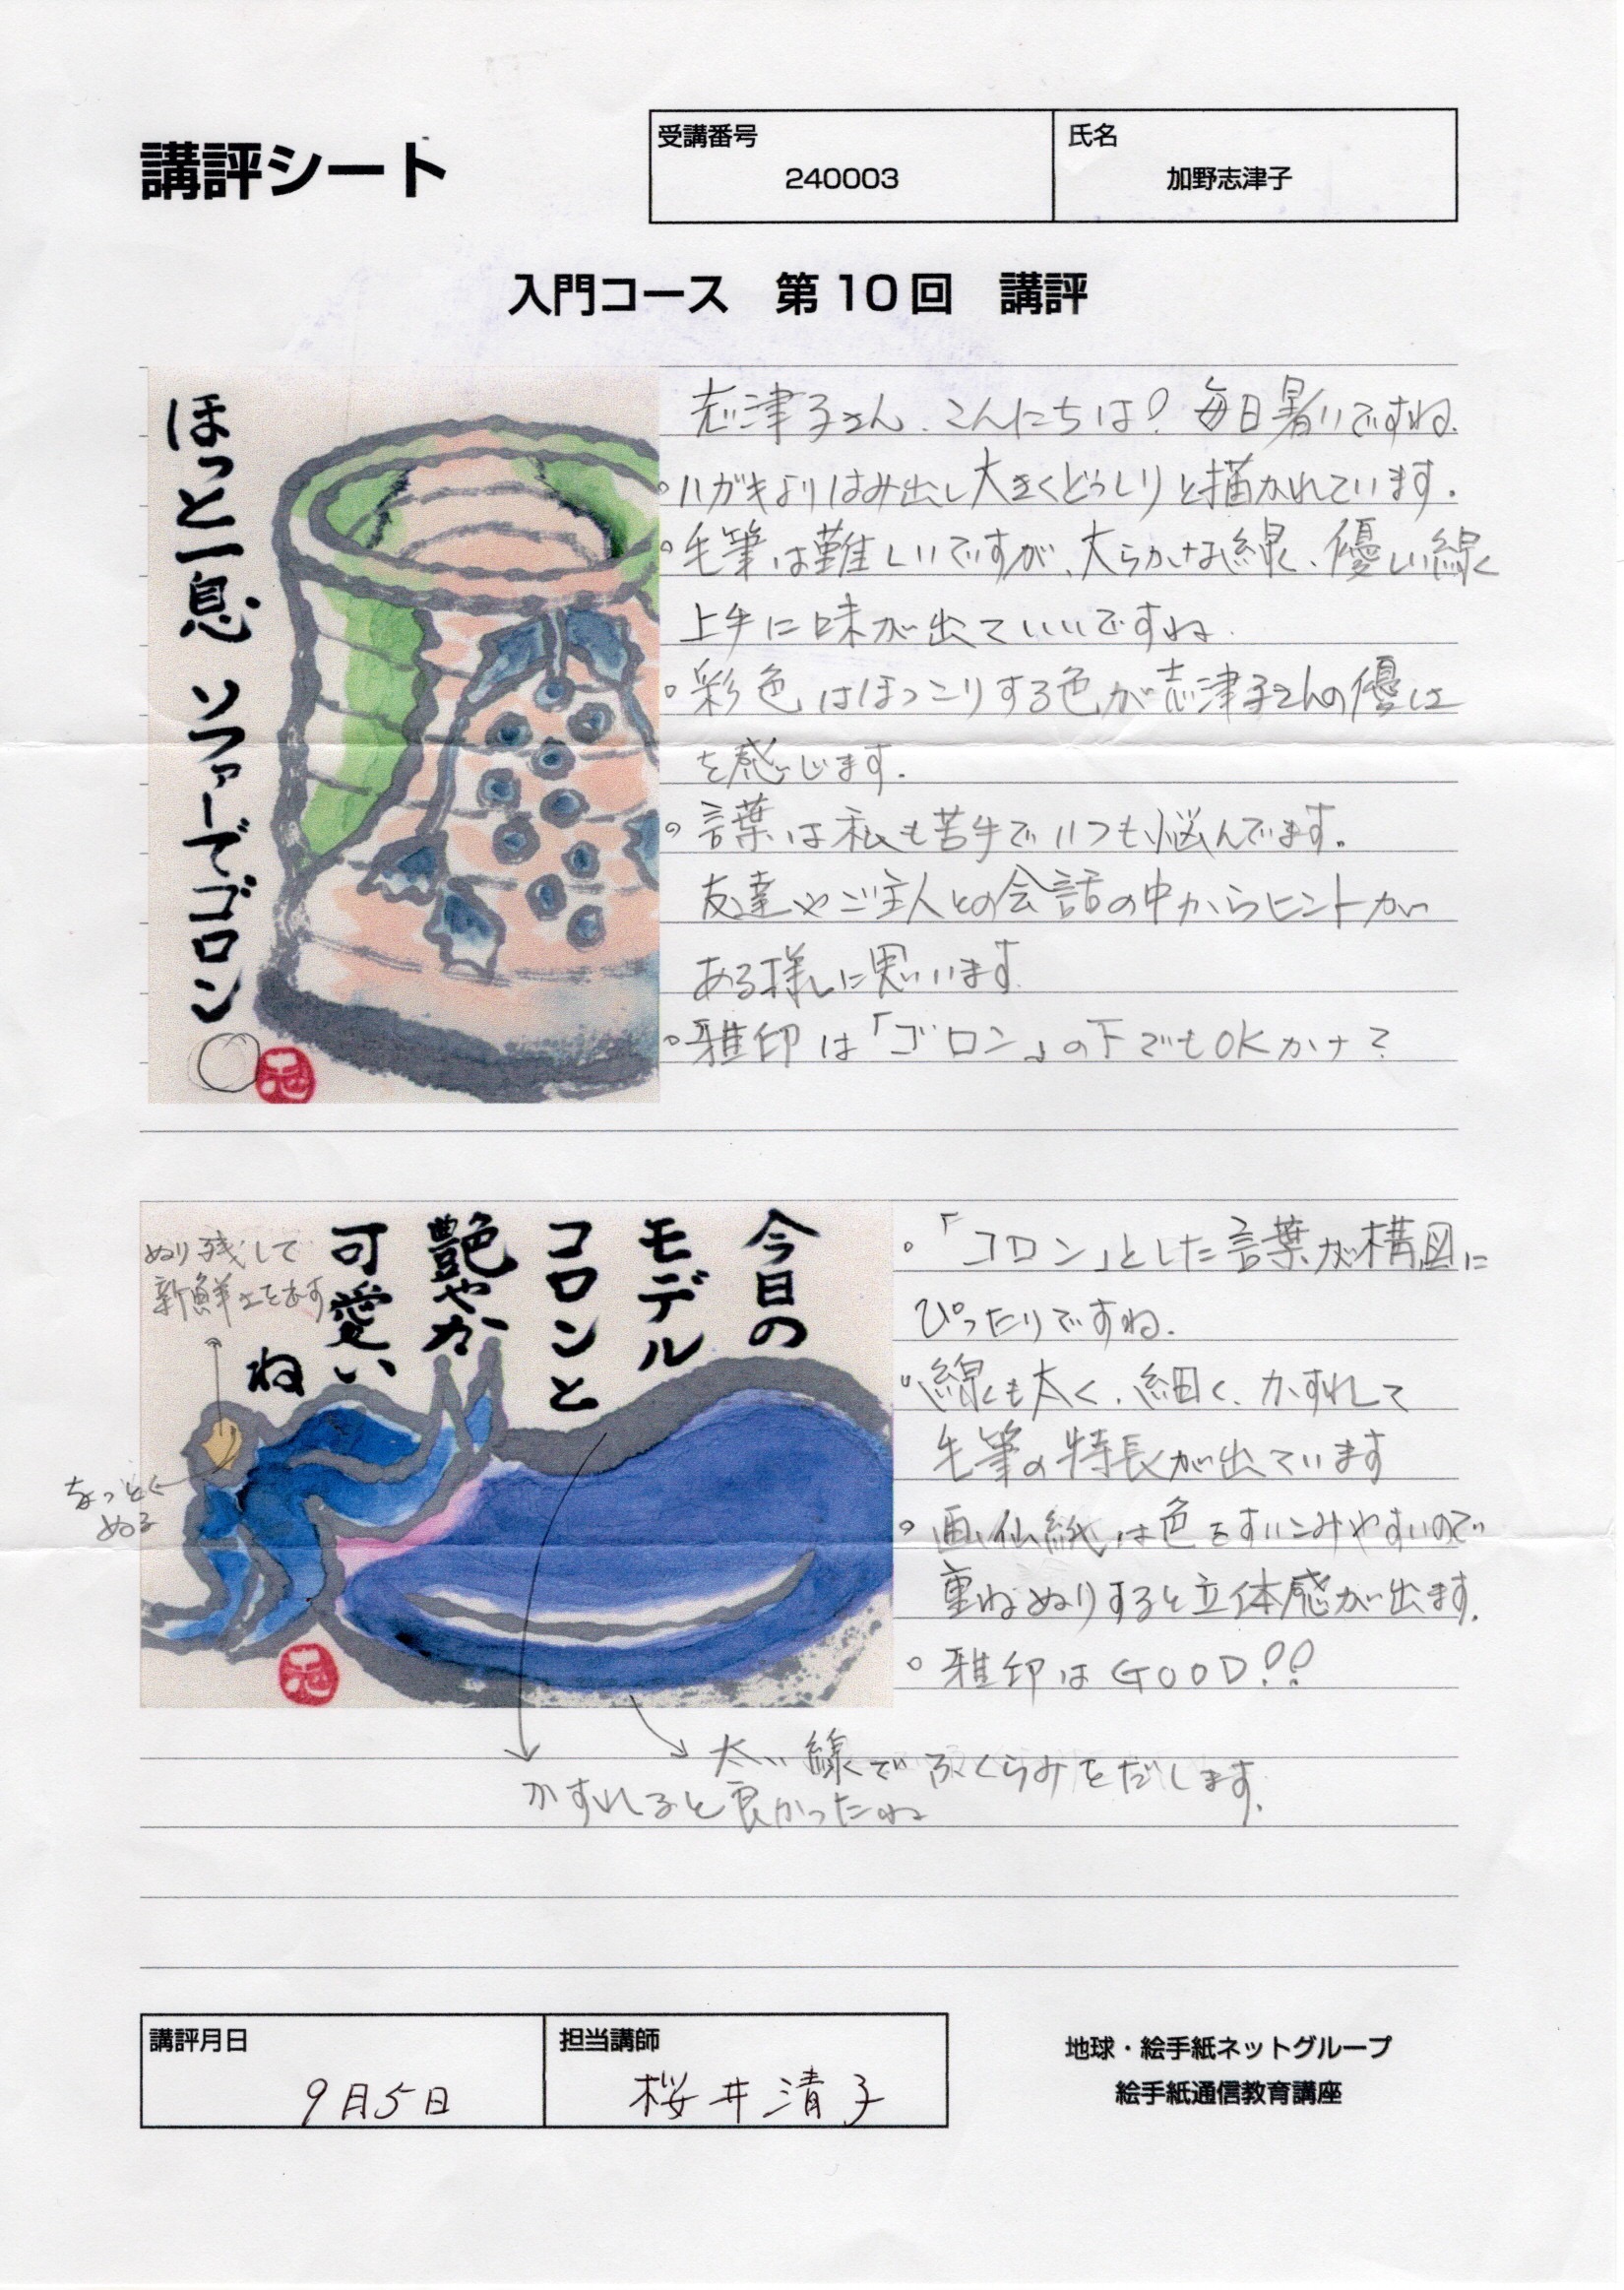 講評シート
受講番号
240003
氏名
加野志津子
入門コース 第10回 講評
ほっと一息 ソファーでゴロン
志津子さん、こんにちは! 毎日暑いですね.
・ハガキよりはみ出し大きくどっしりと描かれています.
・毛筆は難しいですが、大らかな線、優しい線
上手に味が出ていいですね.
・彩色はほっこりする色が志津子さんの優しさ
を感じます.
・言葉は私も苦手でいつも悩んでます.
友達やご主人との会話の中からヒントが
ある様に思います
・雅印は「ゴロン」の下でもOKかナ?
今日の
モデル
コロンと
艶やか
可愛い
ね
ぬり残して
新鮮さを出す
ちょっと
ぬる
・「コロン」とした言葉が構図に
ぴったりですね.
・線も太く、細く、かすれて
毛筆の特長が出ています
・画仙紙は色をすいこみやすいので
重ねぬりすると立体感が出ます.
・雅印はGOOD!!
太い線でふくらみをだします.
かすれると良かったね
講評月日
9月5日
担当講師
桜井清子
地球・絵手紙ネットグループ
絵手紙通信教育講座